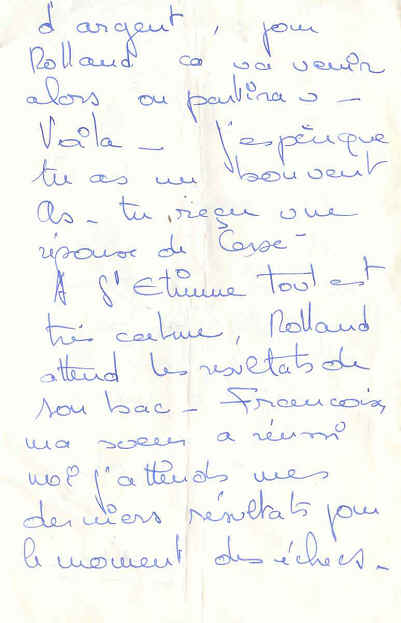 d'argent, pour
Rolland ca va venir
alors on partira -
Voila - j'espère que
tu as un bon vent
As-tu reçu une
réponse de
A St Etienne tout est
très calme, Rolland
attend les resultats de
son bac - Francoise,
ma soeur a réussi
moi j'attends mes
derniers résultats pour
le moment des échecs -